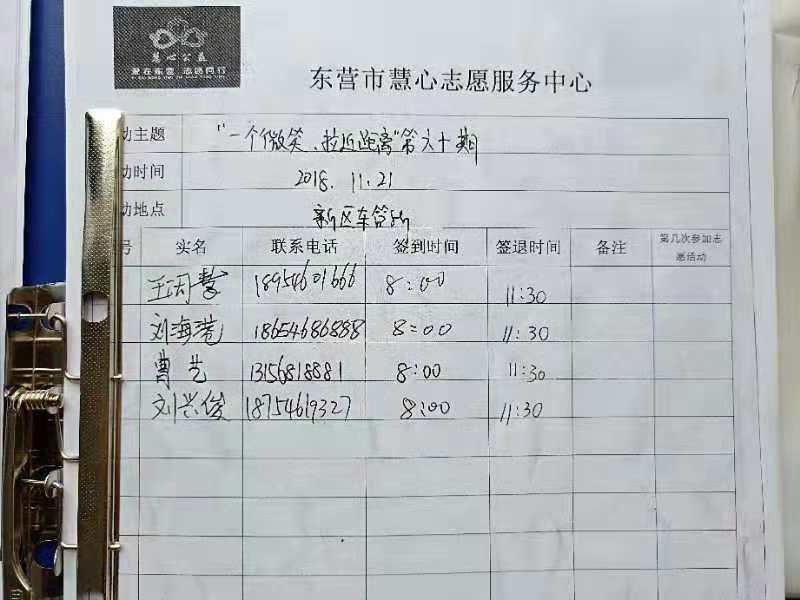 慧心公益
爱在东营 志愿同行
东营市慧心志愿服务中心
动主题 "一个微笑、拉近距离"第六十期
动时间 2018. 11. 21
动地点 新区车管所
号 实名 联系电话 签到时间 签退时间 备注 第几次参加志愿活动
18954601666 8:00 11:30
刘海滢 18654686888 8:00 11:30
曹艺 13156818881 8:00 11:30
刘兴俊 18754619327 8:00 11:30